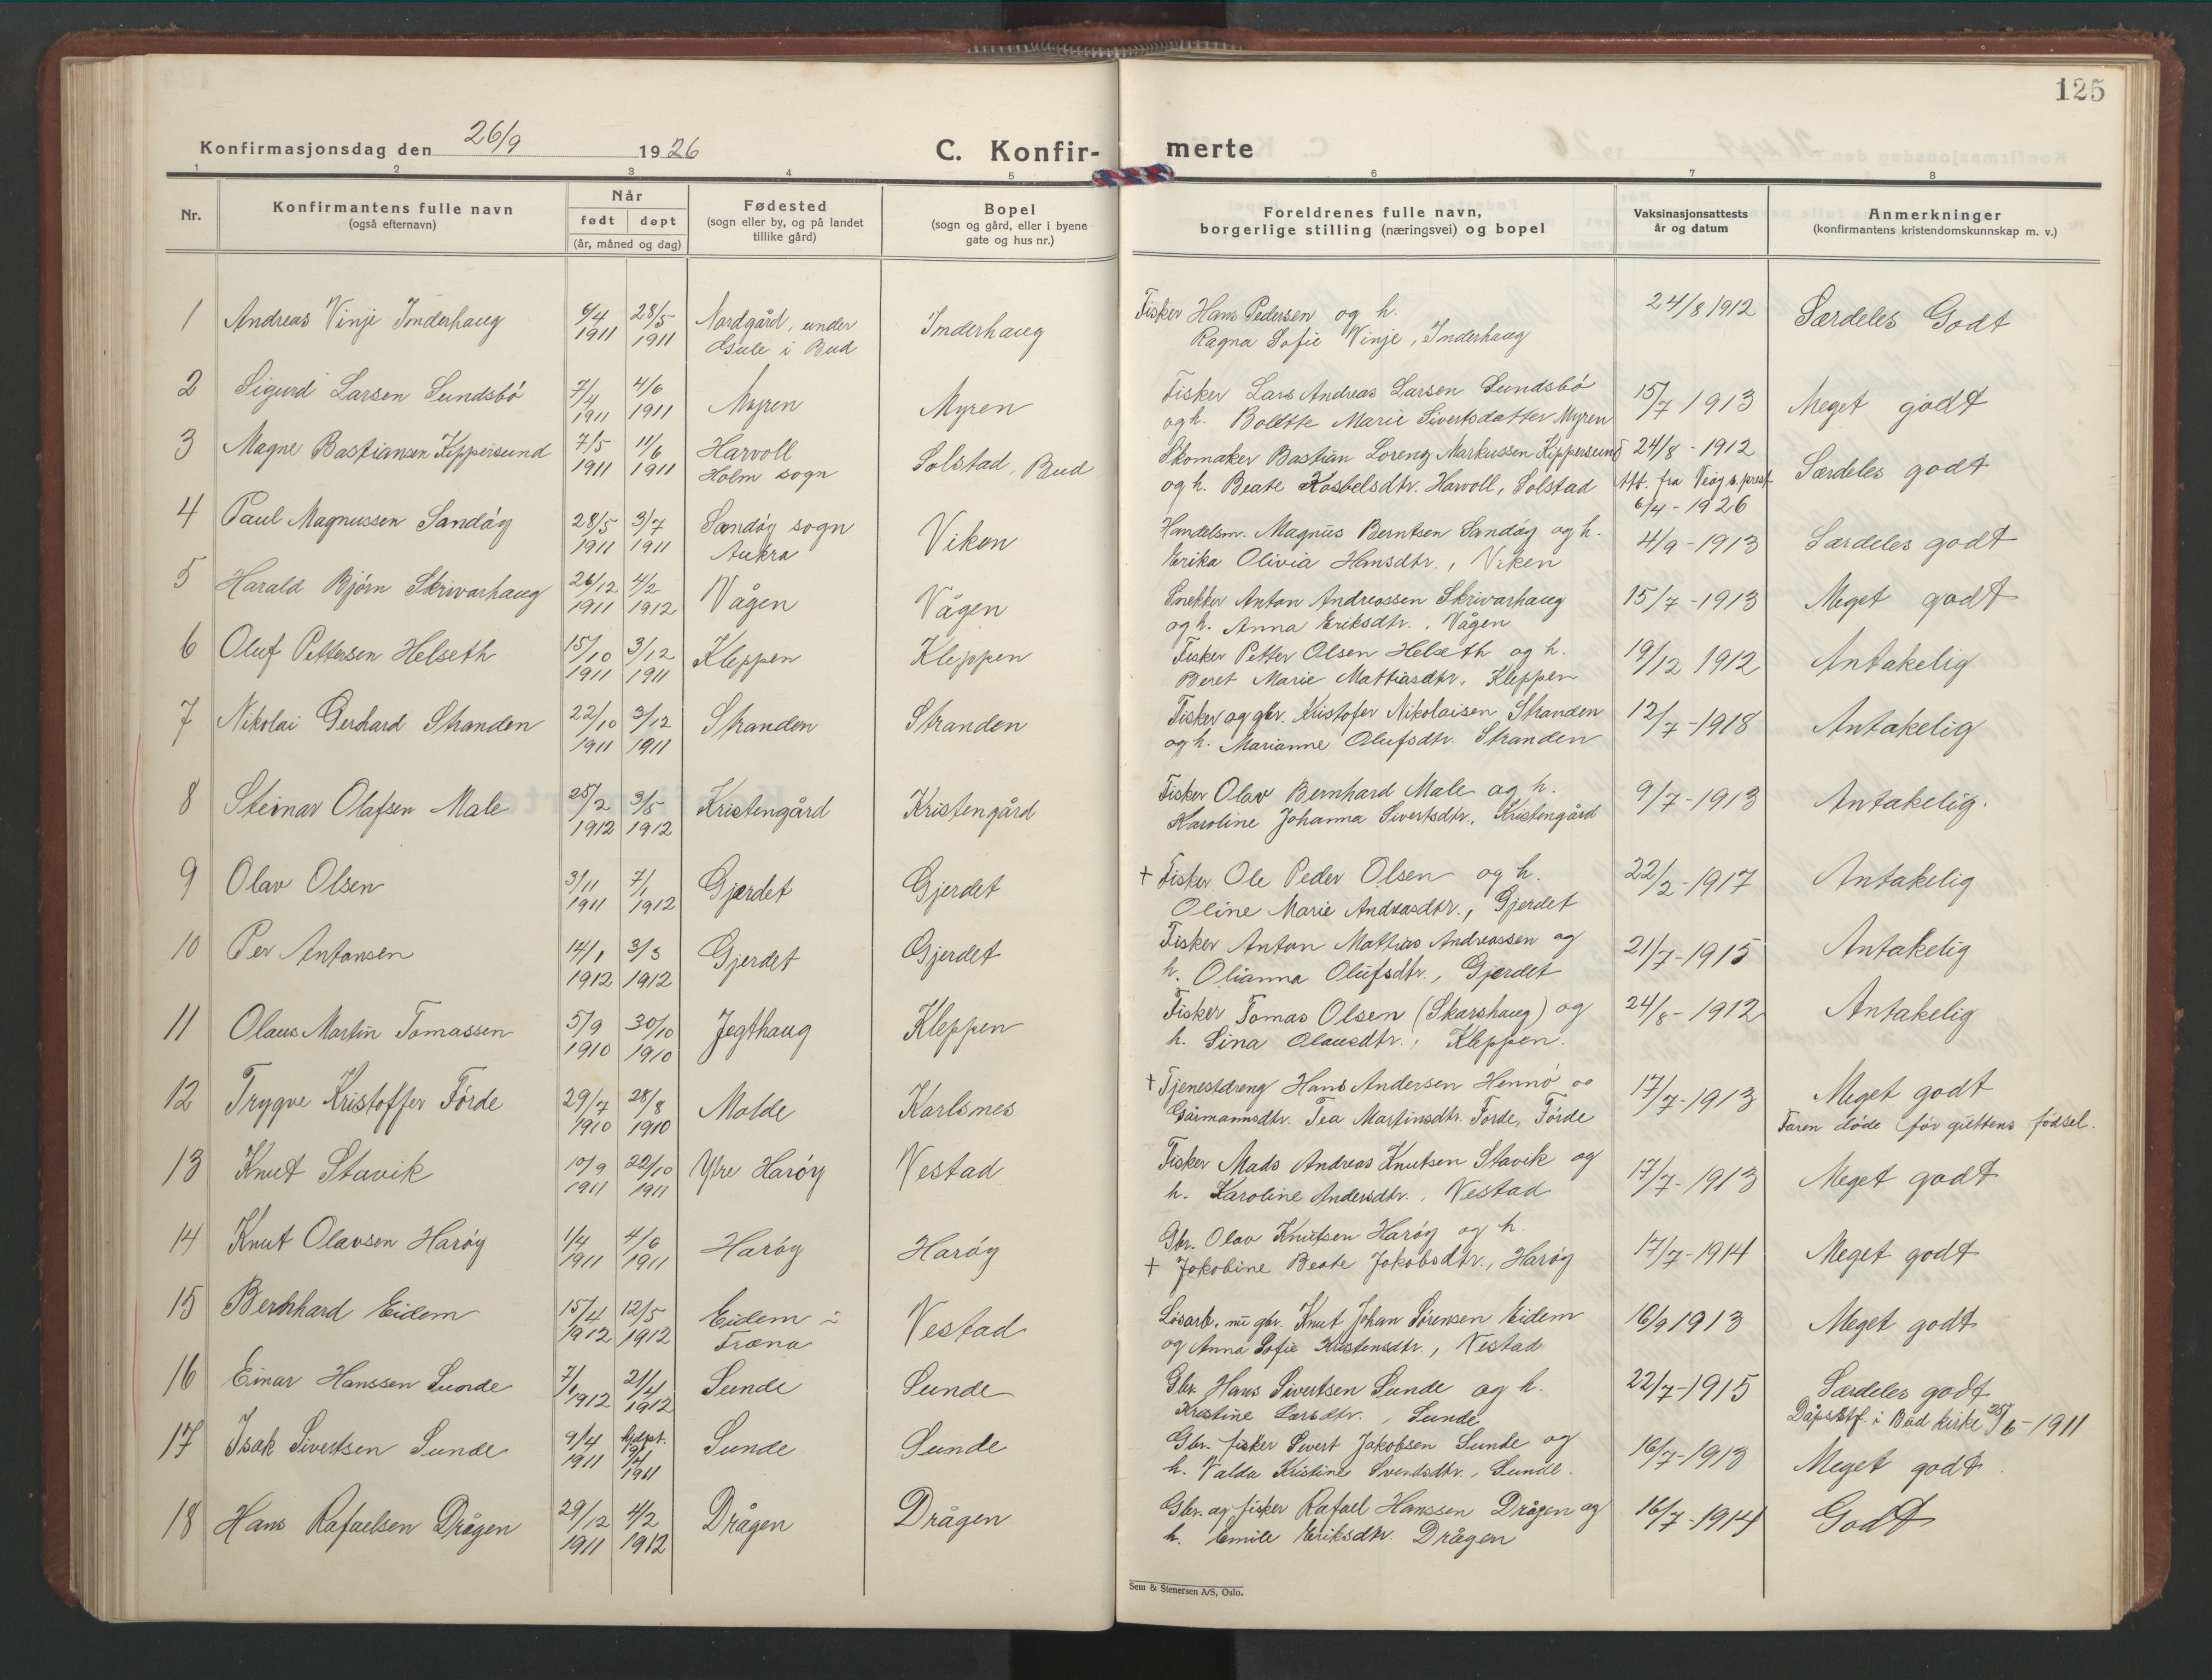 125
Konfirmasjonsdag den 26/9 1926 C. Konfir- merte
1 2 3 4 5 6 7 8
Nr.
Konfirmantens fulle navn
(også efternavn)
Når
født døpt
(år, måned og dag)
Fødested
(sogn eller by, og på landet
tillike gård)
Bopel
(sogn og gård, eller i byene
gate og hus nr.)
Foreldrenes fulle navn,
borgerlige stilling (næringsvei) og bopel
Vaksinasjonsattests
år og datum
Anmerkninger
(konfirmantens kristendomskunnskap m. v.)
1 Andreas Vinje Inderhaug 6/4 1911 28/5 1911 Nordgård, under Gule i Bud Inderhaug
Fisker Hans Pedersen og h. 24/8 1912 Særdeles Godt
Ragna Sofie Vinje, Inderhaug
2 Sigurd Larsen Sundsbö 7/4 1911 4/6 1911 Myren Myren
Fisker Lars Andreas Larsen Sundsbö 15/7 1913 Meget godt
og h. Bolette Marie Sivertsdatter Myren
3 Magne Bastiansen Kippersund 7/5 1911 11/6 1911 Harvoll Holm sogn Solstad, Bud
Skomaker Bastian Lorenz Markussen Kippersund 24/8 - 1912 Særdeles godt
og h. Beate Kosbelsdtr. Harvoll, Solstad Att. fra Veøy s.prest
6/4 - 1926
4 Paul Magnussen Sandøy 28/5 1911 3/7 1911 Sandøy sogn Aukra Viken
Handelsm. Magnus Berntsen Sandøy og h. 4/9 - 1913 Særdeles godt
Erika Olivia Hansdtr., Viken
5 Harald Bjørn Skrivarhaug 26/12 1911 4/2 1912 Vågen Vågen
Snekker Anton Andreassen Skrivarhaug 15/7 - 1913 Meget godt
og h. Anna Eriksdtr., Vågen
6 Oluf Pettersen Helseth 15/10 1911 3/12 1911 Kleppen Kleppen
Fisker Petter Olsen Helseth og h. 19/12 1912 Antakelig
Beret Marie Mattiasdtr, Kleppen
7 Nikolai Gerhard Stranden 22/10 1911 3/12 1911 Stranden Stranden
Fisker og gbr. Kristofer Nikolaisen Stranden 12/7 - 1918 Antakelig
og h. Marianne Olufsdtr. Stranden
8 Steinar Olafsen Male 25/2 1912 3/5 1912 Kristengård Kristengård
Fisker Olav Bernhard Male og h. 9/7 - 1913 Antakelig.
Karoline Johanna Sivertsdtr., Kristengård
9 Olav Olsen 3/11 1911 7/1 1912 Gjerdet Gjerdet
+ Fisker Ole Peder Olsen og h. 22/2 - 1917 Antakelig
Oline Marie Andreasdtr., Gjerdet
10 Per Antonsen 14/1 1912 3/3 1912 Gjerdet Gjerdet
Fisker Anton Mathias Andreassen og 21/7 - 1915 Antakelig
h. Olianna Olufsdtr., Gjerdet
11 Olaus Martin Tomassen 5/9 1910 30/10 1910 Jegthaug Kleppen
Fisker Tomas Olsen (Skarshaug) og 24/8 - 1912 Antakelig
h. Sina Olausdtr., Kleppen.
12 Trygve Kristoffer Förde 29/7 1910 28/8 1910 Molde Karlsnes
+ Tjenestdreng Hans Andersen Hennö og 17/7 - 1913 Meget godt
Gårmannsdtr. Tea Martinsdtr. Förde, Förde Faren döde før guttens födsel.
13 Knut Stavik 10/9 1911 22/10 1911 Ytre Harøy Nestad
Fisker Mads Andreas Knutsen Stavik og 17/7 - 1913 Meget godt
h. Karoline Andersdtr., Nestad
14 Knut Olavsen Harøy 1/4 1911 4/6 1911 Harøy Harøy
Gbr. Olav Knutsen Harøy og h. 17/7 - 1914 Meget godt
+ Jakobine Beate Jakobsdtr., Harøy
15 Bernhard Eidem 15/4 1912 12/5 1912 Eidem i Fræna Nestad
Lösarb. nu gbr. Knut Johan Sörensen Eidem 16/9 1913 Meget godt
og Anna Sofie Kristensdtr., Nestad
16 Einar Hanssen Sunde 7/1 1912 21/4 1912 Sunde Sunde
Gbr. Hans Sivertsen Sunde og h. 22/7 - 1915 Særdeles godt
Kristine Larsdtr., Sunde
17 Isak Sivertsen Sunde 9/4 1911 hjdpt. 9/4 1911 Sunde Sunde
Dåpsstf. i Bud kirke 25/6 - 1911
Gbr. fisker Sivert Jakobsen Sunde og 16/7 - 1913 Meget godt.
h. Valda Kristine Svendsdtr., Sunde.
18 Hans Rafaelsen Drågen 29/12 1911 4/2 1912 Drågen Drågen
Gbr. og fisker Rafael Hanssen Drågen og 16/7 - 1914 Godt
h. Emile Eriksdtr. Drågen
Sem & Stenersen A/S, Oslo.